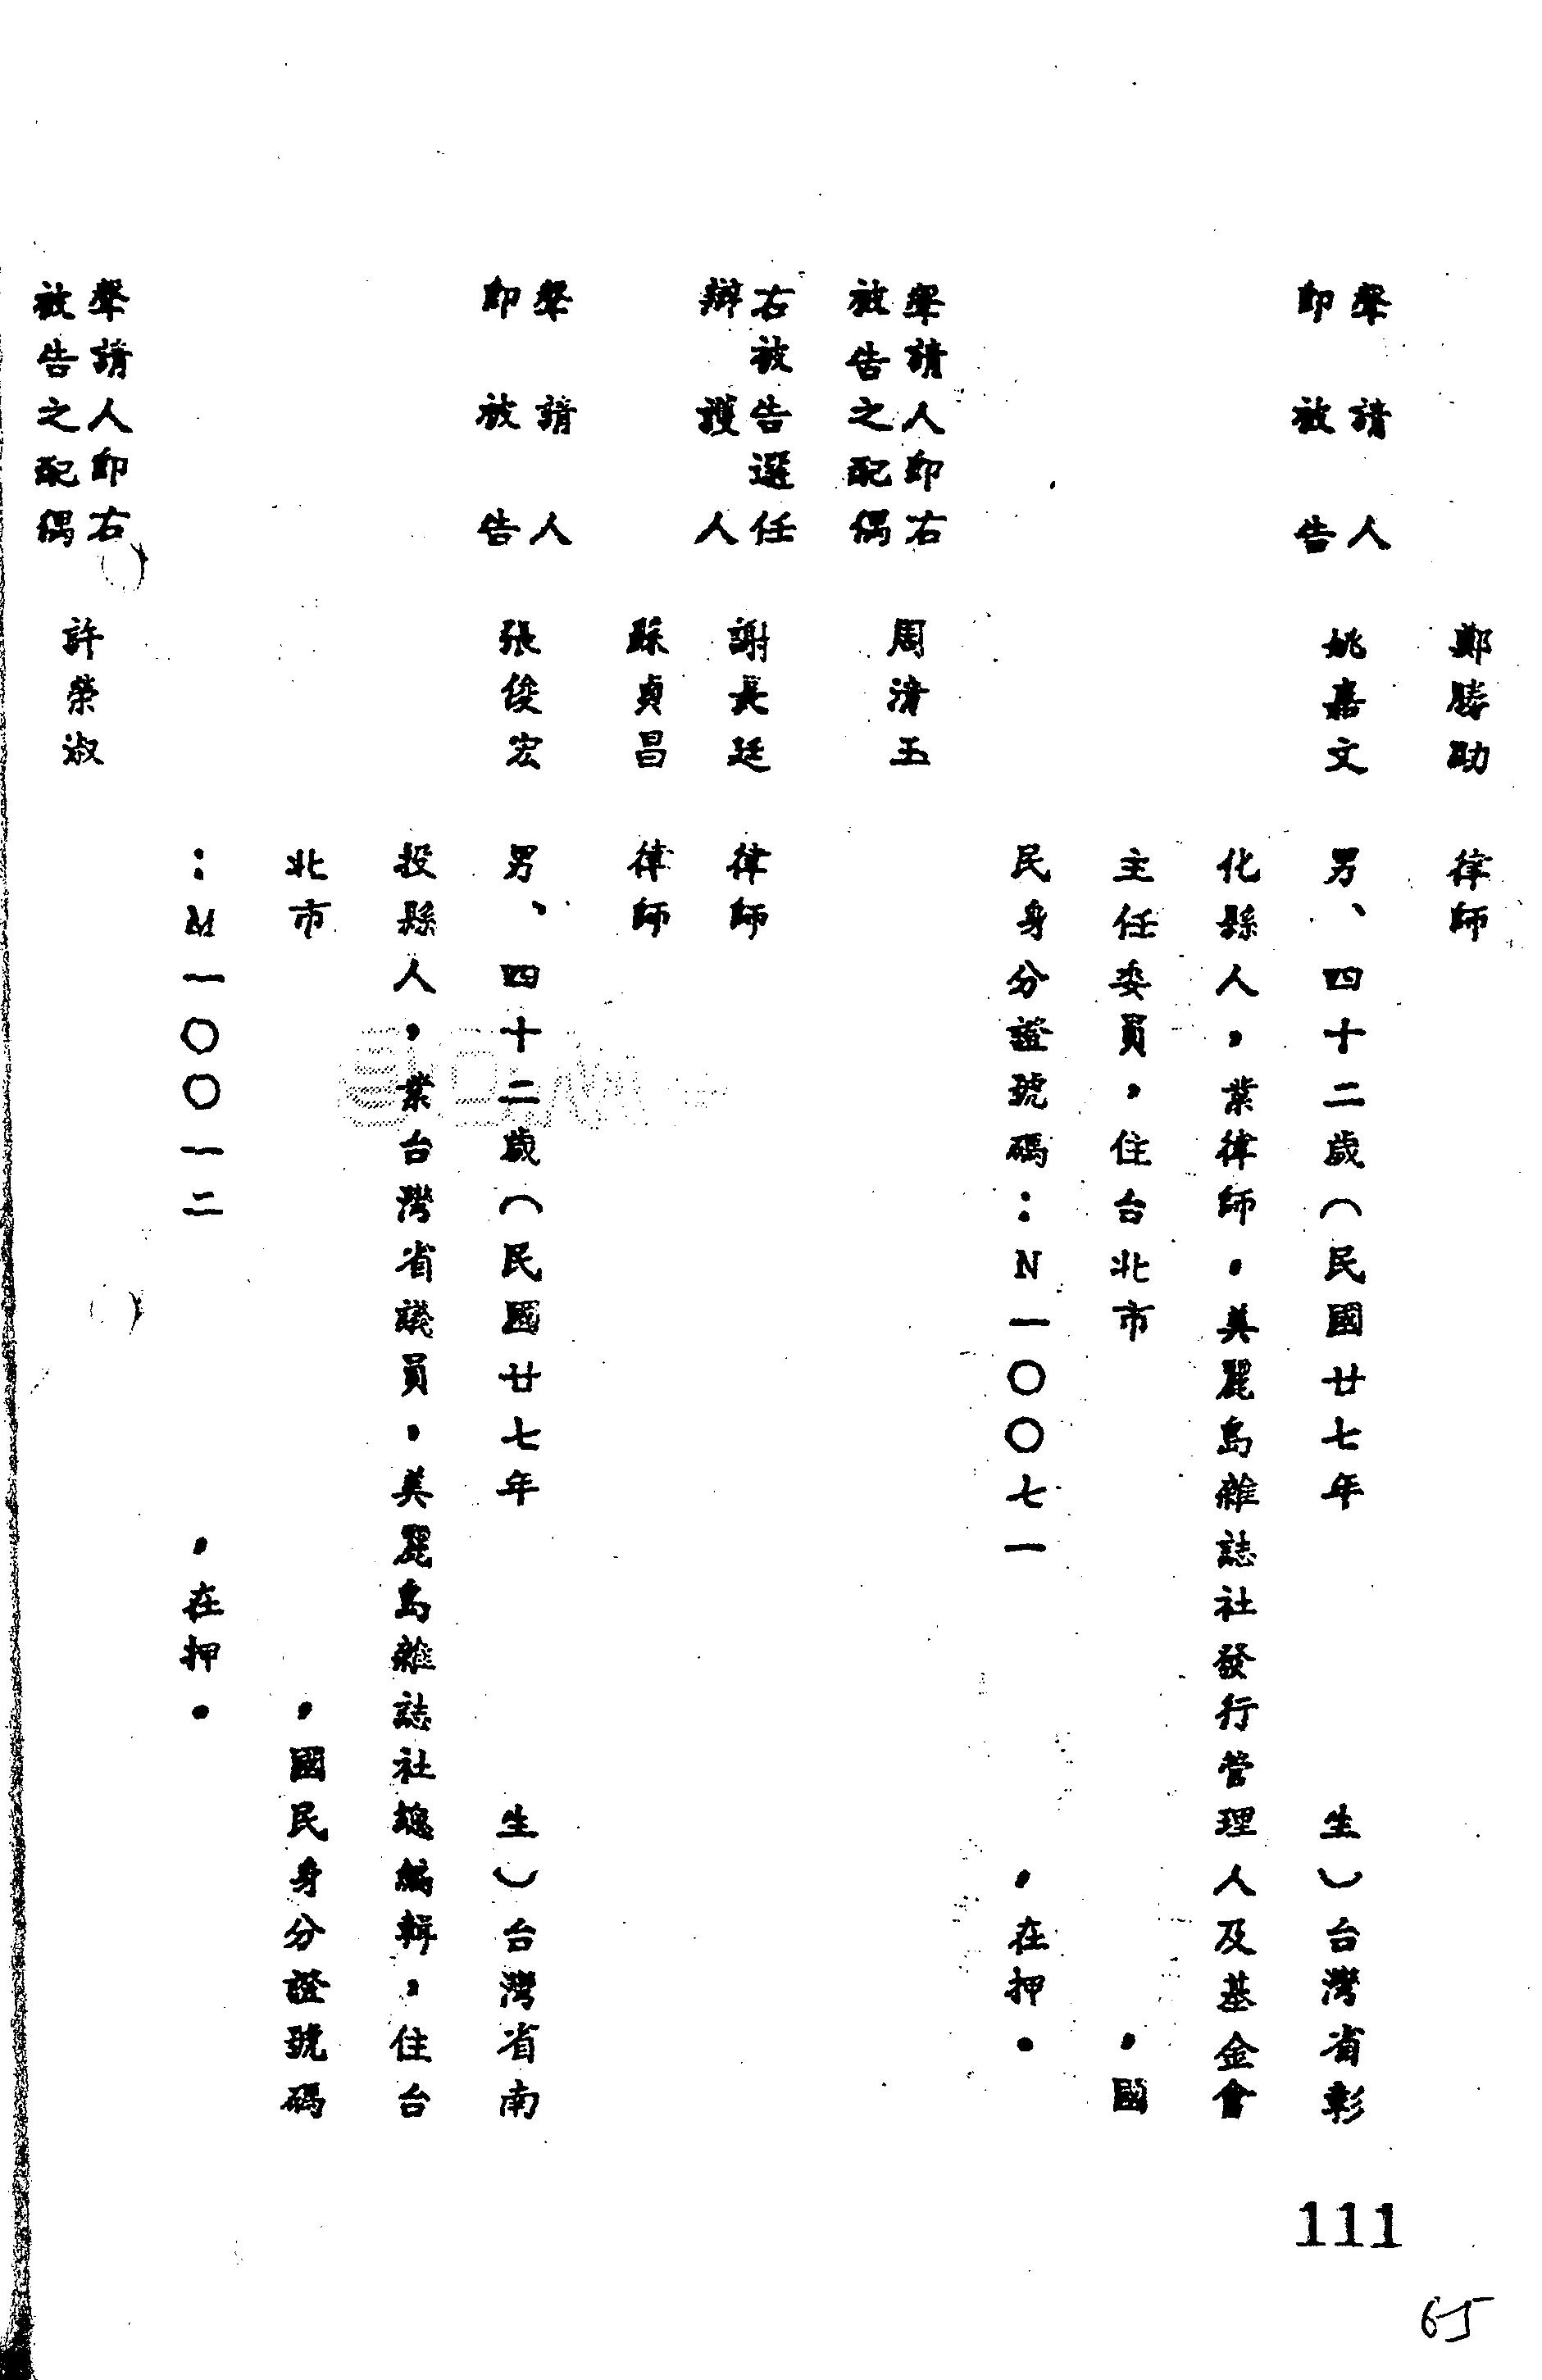 鄭勝助　律師
聲請人
即被告　姚嘉文　男、四十二歲（民國廿七年　生）台灣省彰
化縣人，業律師。美麗島雜誌社發行管理人及基金會
主任委員，住台北市　，國
民身分證號碼：N一〇〇七一　，在押。
聲請人即右
被告之配偶　周清玉
右被告選任
辯護人　謝長廷　律師
蘇貞昌　律師
聲請人
即被告　張俊宏　男、四十二歲（民國廿七年　生）台灣省南
投縣人，業台灣省議員，美麗島雜誌社總編輯，住台
北市　，國民身分證號碼
：M一〇〇一二　，在押。
聲請人即右
被告之配偶　許榮淑
111
65